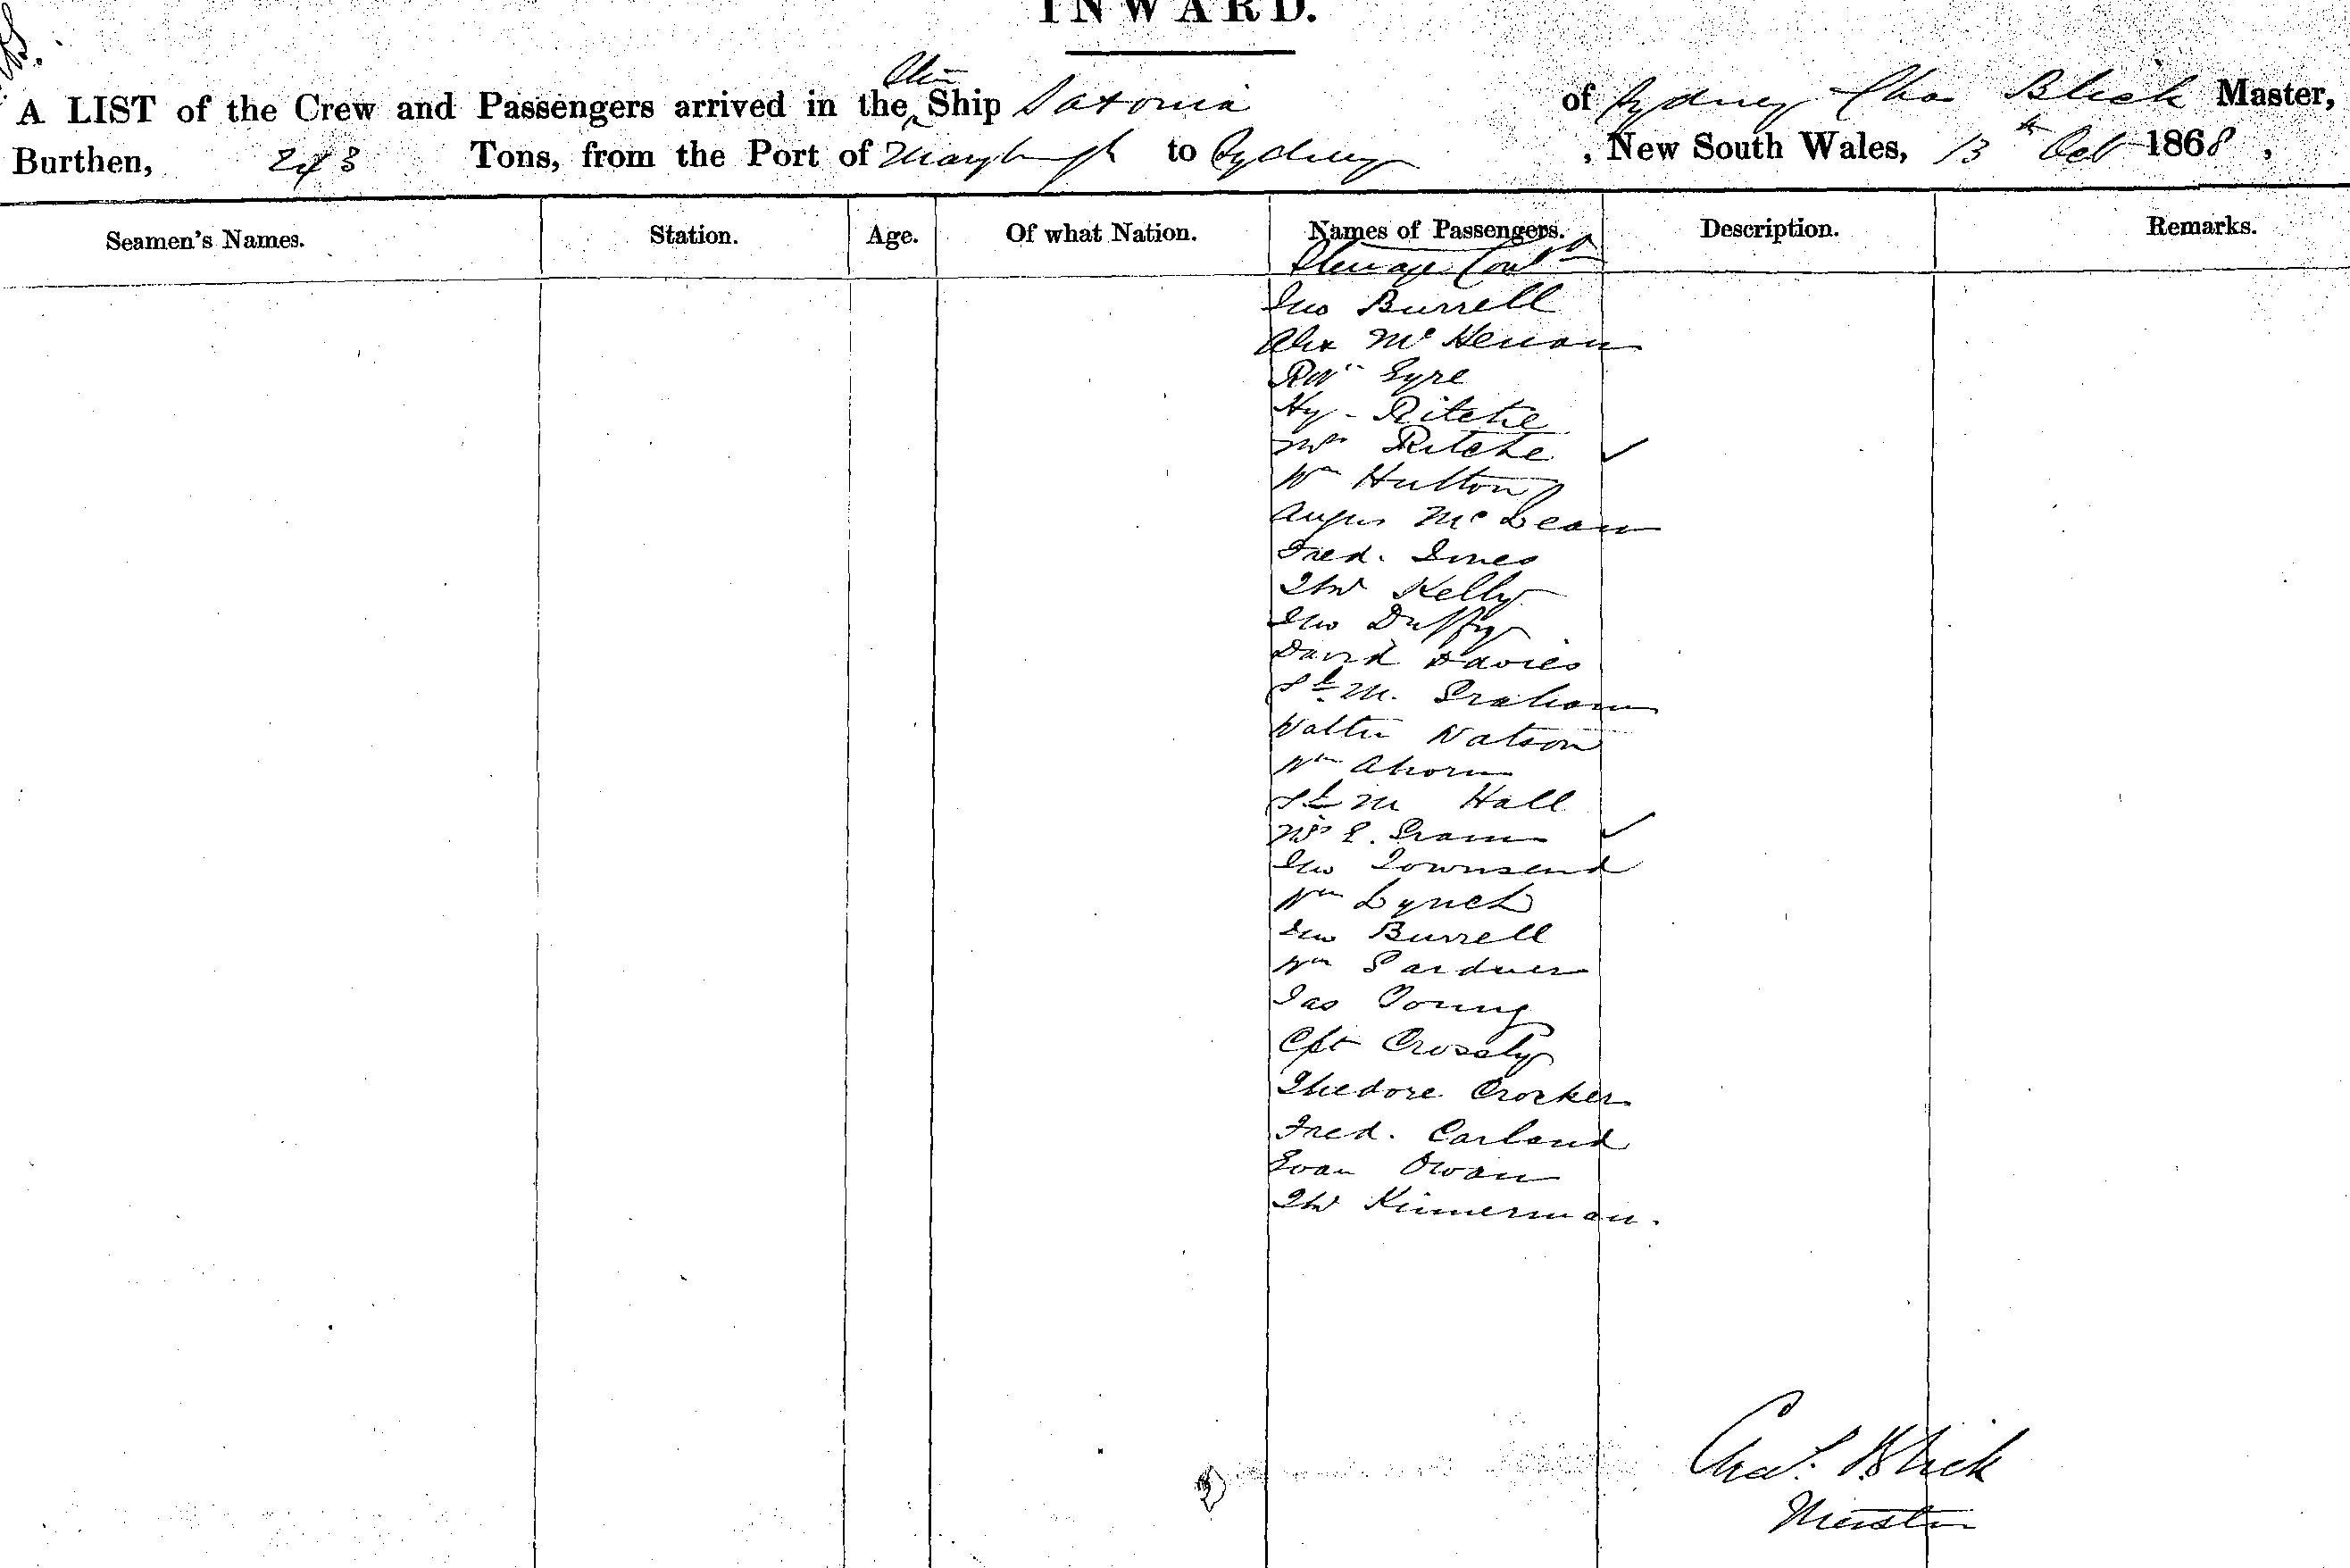 INWARD.
A LIST of the Crew and Passengers arrived in the Ship Saxonia of Sydney Chas Blick Master,
Burthen, 243 Tons, from the Port of Marybugh to Sydney, New South Wales, 13th Oct 1868,
Seamen's Names. Station. Age. Of what Nation. Names of Passengers. Description. Remarks.
Steerage Contd
Jno Burrell
Alex McKenon
Eyre
Hy- Ritchie
Mrs Ritchie ✓
Wm Hutton
Angus McLean
Fred. Innes
Thos Kelly
Jno Duffy
David Davies
St. M. Graham
Walter Watson
Wm Ahorn
St M Hall
Mrs E. Gram ✓
Jno Townsend
Wm Lynch
Jno Burrell
Wm Gardner
Jas Young
Cpt Crossly
Thedore Crocker
Fred. Carland
Evan Owan
Thos Kinnerman.
Chas. Blick
Master